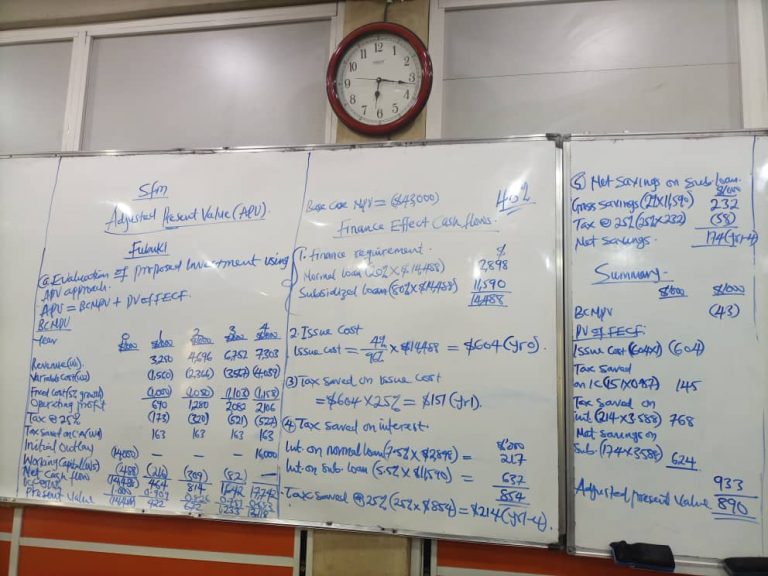 12
1
2
3
4
5
6
7
8
9
10
11
Sfm
Adjusted Present Value (APV).
Fubuki
(a) Evaluation of proposed investment using
APV approach.
APV = BCNPV + PV of FECF.
BCNPV
Year 0 1 2 3 4
$'000 $'000 $'000 $'000 $'000
Revenue(w1) 3,250 4,696 6,752 7,303
Variable cost(w2) (1,560)
Fixed cost(5% growth) (1,000) (1,050) (1,103) (1,158)
Operating profit 690 1280 2082 2106
Tax @ 25% (173) (320) (521) (527)
Tax saved on CA(w4) 163 163 163 163
Initial outlay (14000) — — — 16000
Working Capital(w5) (488) (216) (309) (82) —
Net cash flow (14,488) 464
1.000
Present Value (14,488) 422
Base case NPV = ($43000)
40%
Finance Effect Cash flows.
1. Finance requirement.
Normal loan (20% X $14,488) 2,898
Subsidized loan (80% X $14,488) 11,590
14,488
2. Issue cost
Issue cost = 4% / 96% X $14,488 = $604 (yr0).
③ Tax saved on issue cost
= $604 X 25% = $151 (yr1).
④ Tax saved on interest.
$'000
Int. on normal loan (7.5% X $2898) = 217
Int. on Sub. loan (5.5% X $11,590) = 637
854
Tax saved @ 25% (25% X $854) = $214 (yr1-4)
⑤ Net Savings on Sub. loan.
$'000
Gross savings (2% X 11,590) 232
Tax @ 25% (25% X 232) (58)
Net savings. 174 (yr1-4)
Summary.
$'000 $'000
BCNPV (43)
PV of FECF:
Issue cost (604X1) (604)
Tax saved
on IC (151X0.957) 145
Tax saved on
int. (214X3.588) 768
Net savings on
Sub. (174X3.588) 624
933
Adjusted present Value 890